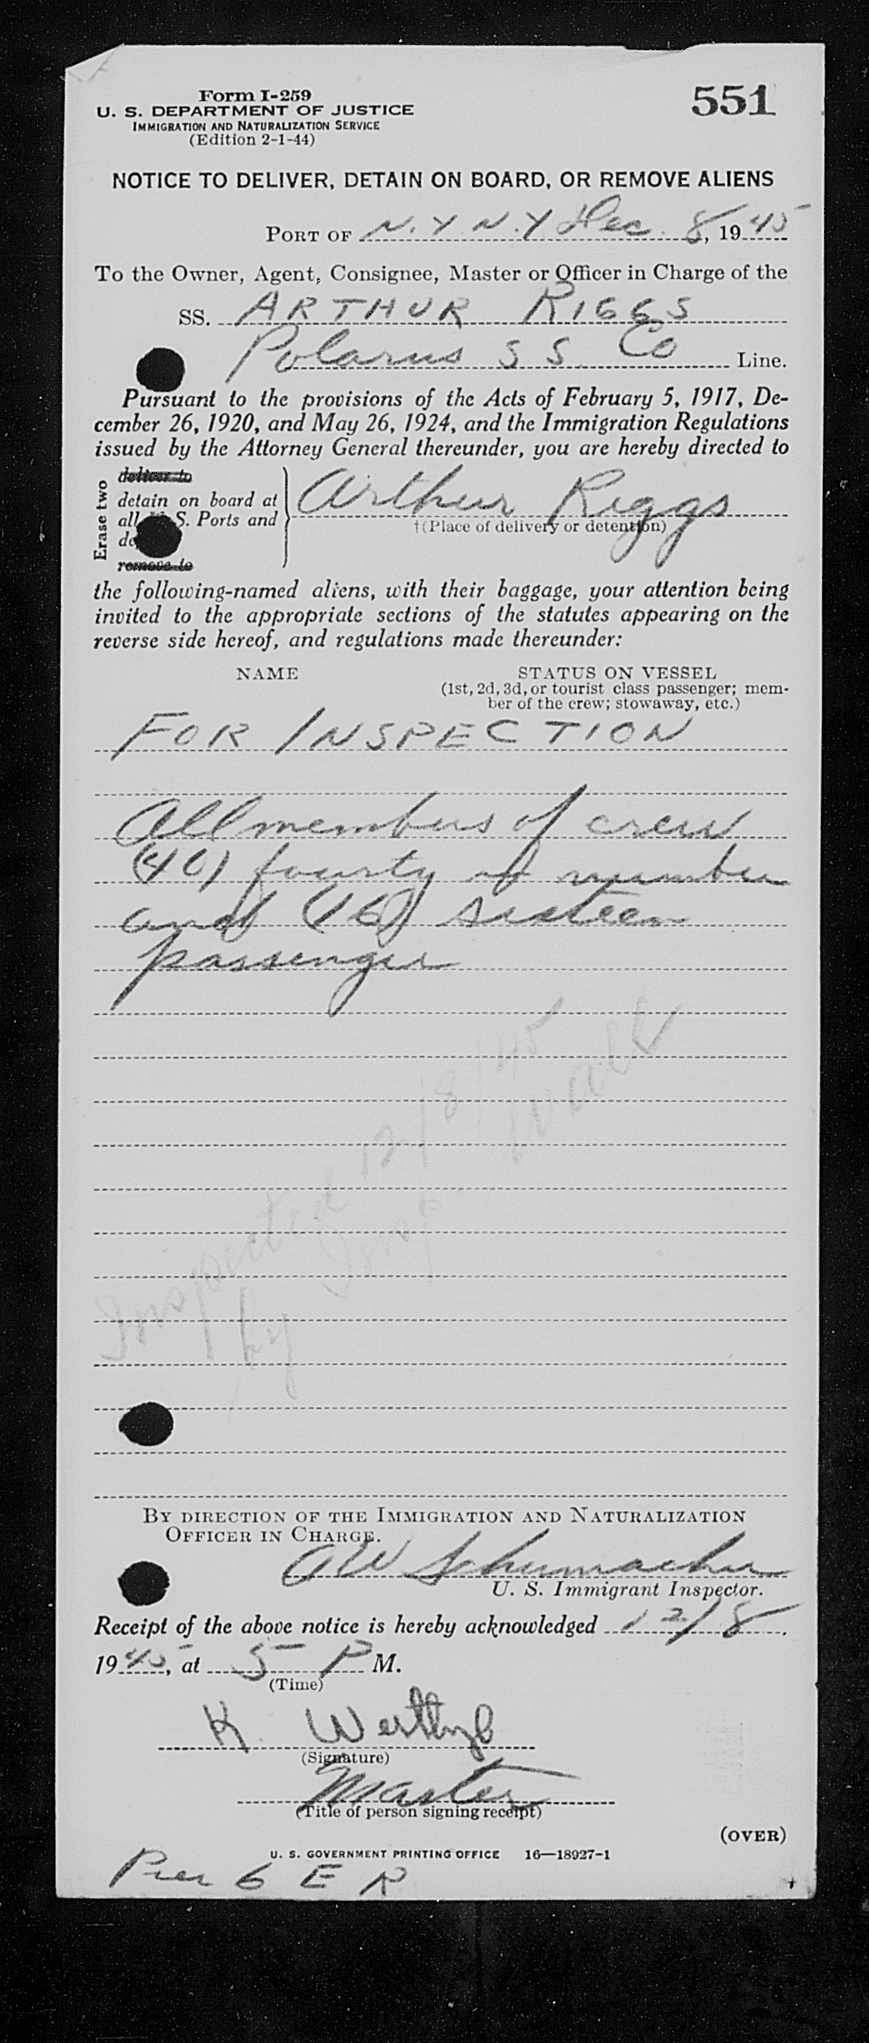 Form I-259
U. S. DEPARTMENT OF JUSTICE
IMMIGRATION AND NATURALIZATION SERVICE
(Edition 2-1-44)
551
NOTICE TO DELIVER, DETAIN ON BOARD, OR REMOVE ALIENS
PORT OF N.Y N.Y Dec. 8, 1945
To the Owner, Agent, Consignee, Master or Officer in Charge of the
SS. ARTHUR RIGGS
Polarus S S. Co Line.
Pursuant to the provisions of the Acts of February 5, 1917, De-
cember 26, 1920, and May 26, 1924, and the Immigration Regulations
issued by the Attorney General thereunder, you are hereby directed to
Erase two
deliver to
detain on board at
all S. Ports and
remove to
Arthur Riggs
†(Place of delivery or detention)
the following-named aliens, with their baggage, your attention being
invited to the appropriate sections of the statutes appearing on the
reverse side hereof, and regulations made thereunder:
NAME STATUS ON VESSEL
(1st, 2d, 3d, or tourist class passenger; mem-
ber of the crew; stowaway, etc.)
FOR INSPECTION
All members of crew
(40) fourty in number
and (16) sixteen
passenger
Inspected 12/8/45
by Insp.
BY DIRECTION OF THE IMMIGRATION AND NATURALIZATION
OFFICER IN CHARGE.
AW Schumacher
U. S. Immigrant Inspector.
Receipt of the above notice is hereby acknowledged 12/8,
1945, at 5 P M.
(Time)
K.
(Signature)
Master
(Title of person signing receipt)
(OVER)
U. S. GOVERNMENT PRINTING OFFICE 16—18927-1
Pier 6 E R